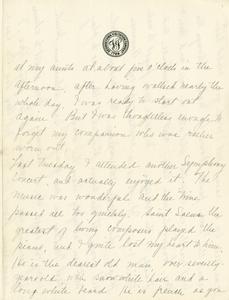 at my aunts at about five o'clock in the
afternoon, after having walked nearly the
whole day, I was ready to start out
again. But I was thoughtless enough to
forget my companion who was rather
worn out.
Last Tuesday I attended another Symphony
Concert, and actually enjoyed it. The
music was wonderful and the time
passed all too quickly. Saint Saens the
greatest of living composers played the
piano, and I quite lost my heart to him.
He is the dearest old man, over seventy
years old, with snow white hair and a
long white beard. He is French as you